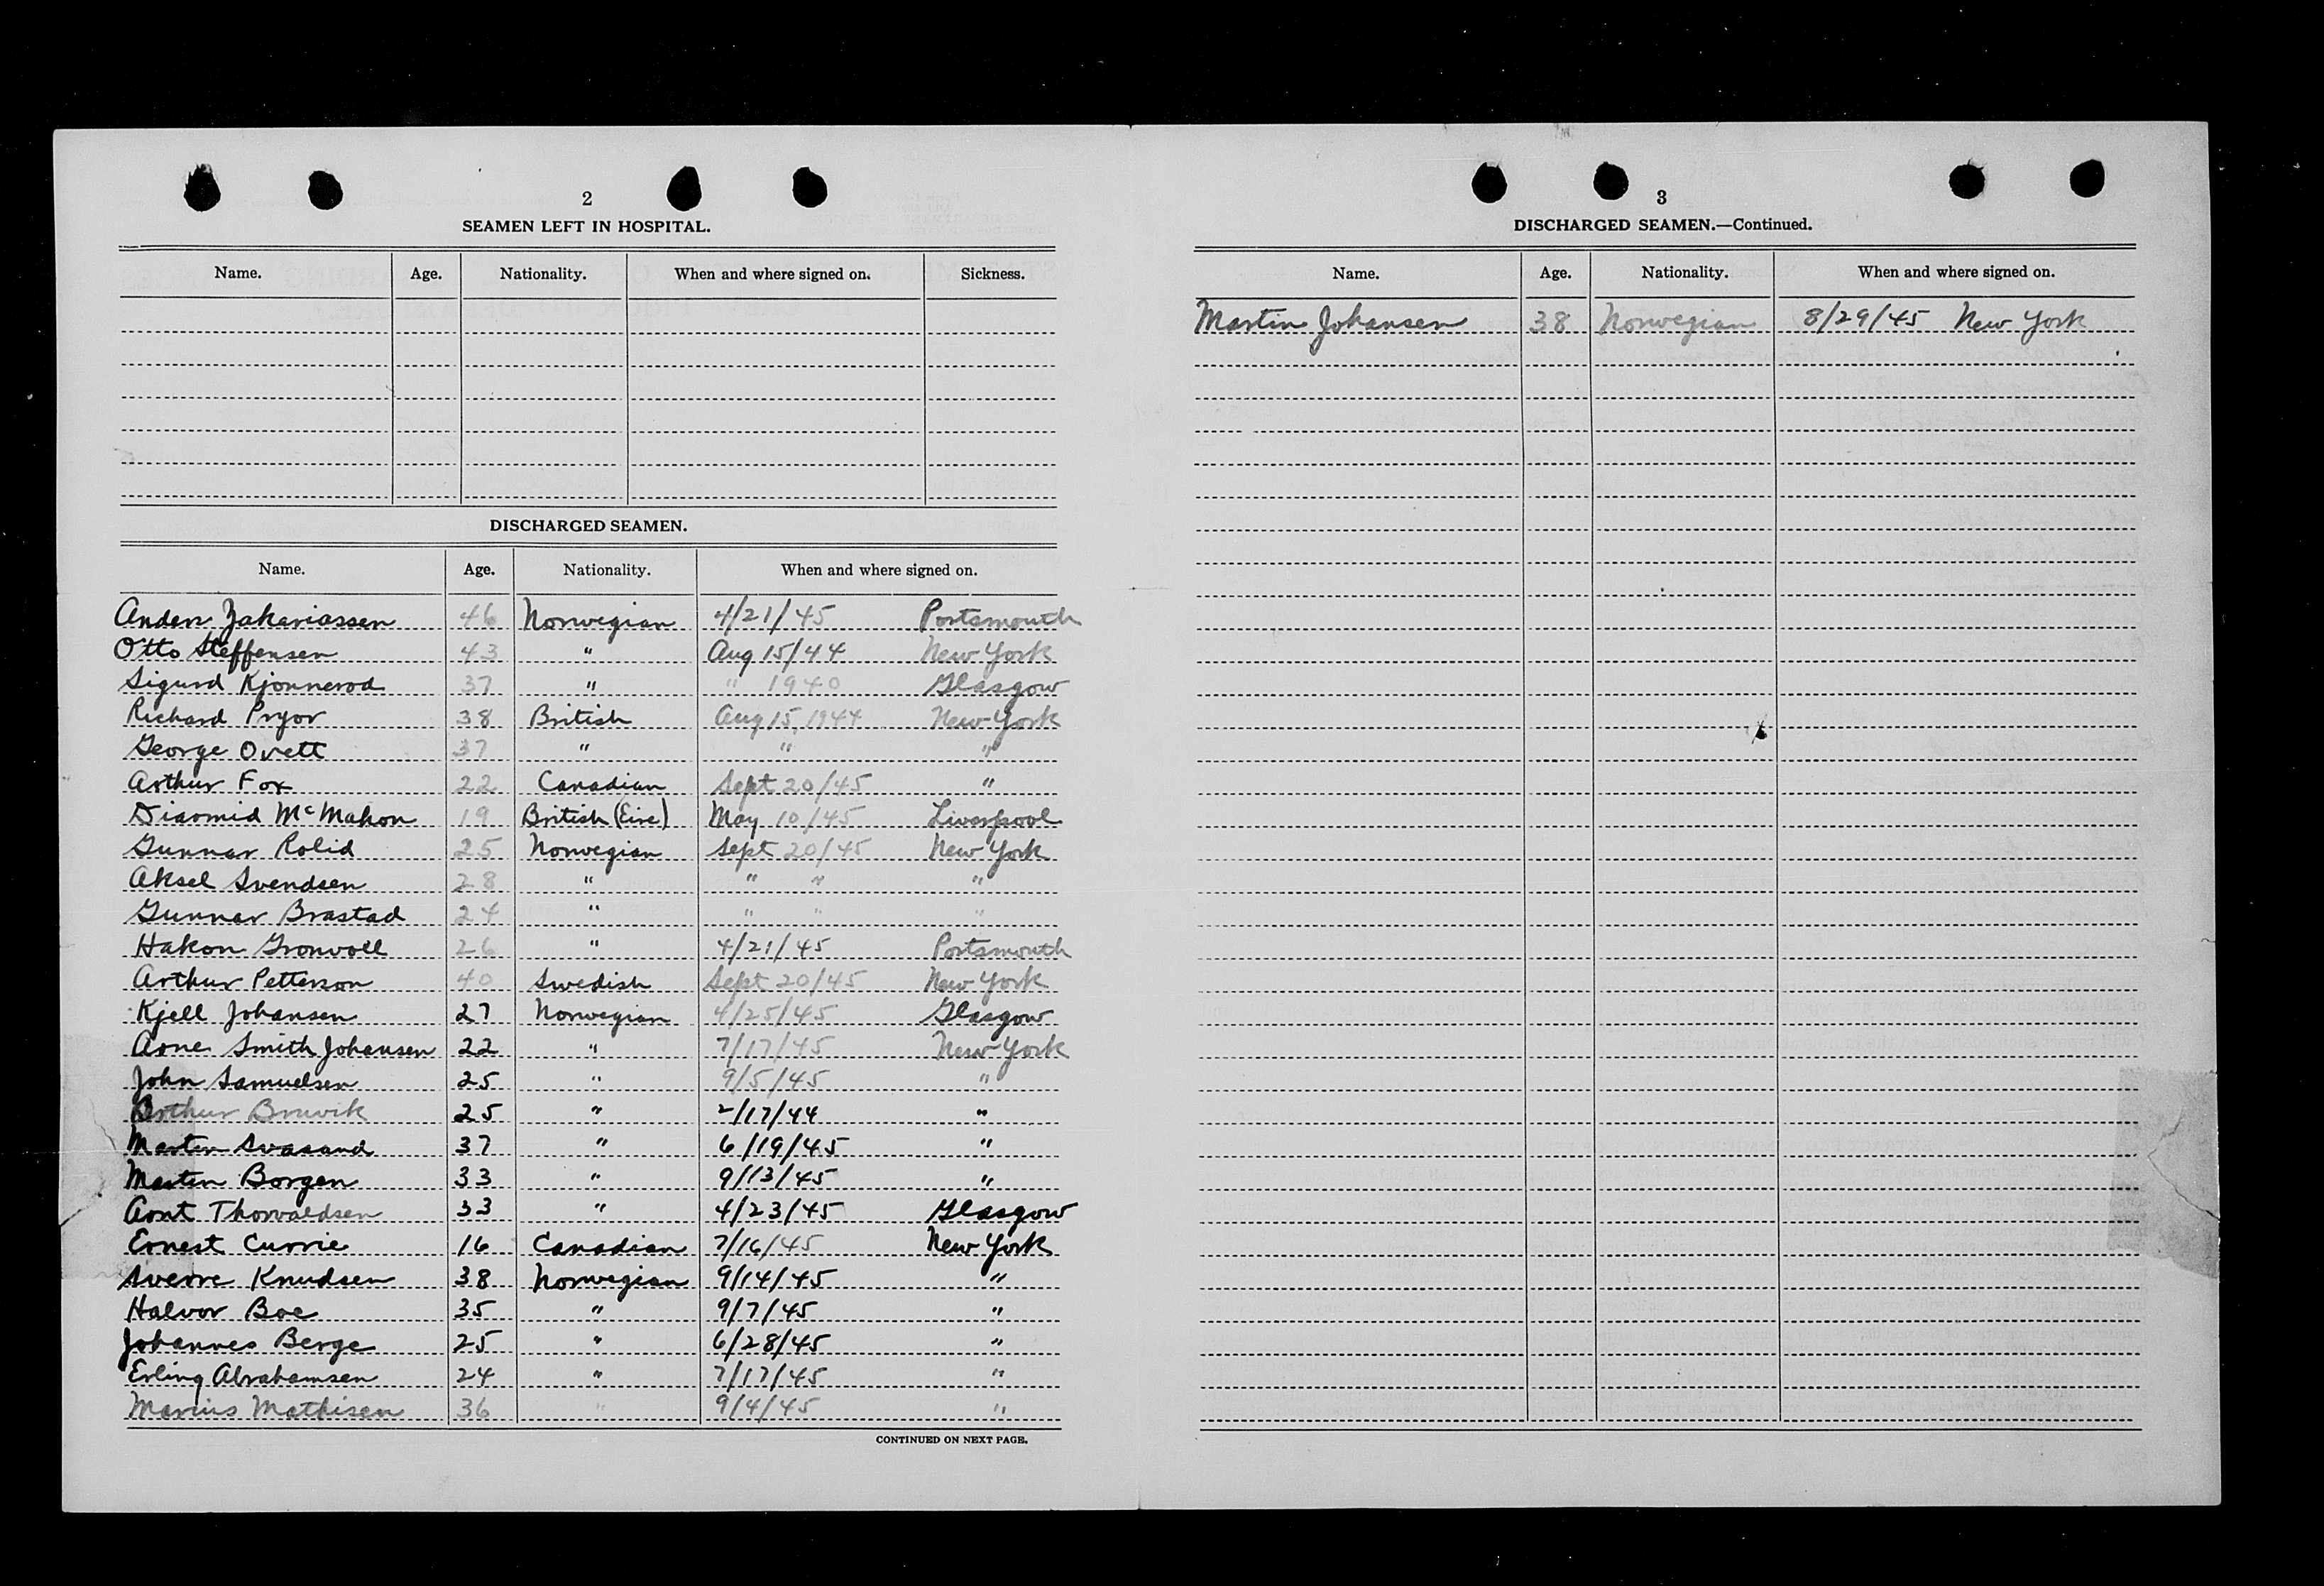 2
SEAMEN LEFT IN HOSPITAL.
Name. Age. Nationality. When and where signed on. Sickness.
DISCHARGED SEAMEN.
Name. Age. Nationality. When and where signed on.
Anders Zakariassen 46 Norwegian 4/21/45 Portsmouth
Otto Steffensen 43 " Aug 15/44 New York
Sigurd Kjonnerod 37 " " 1940 Glasgow
Richard Pryor 38 British Aug 15, 1944 New York
George Ovett 37 " " "
Arthur Fox 22 Canadian Sept 20/45 "
Diarmid McMahon 19 British (Eire) May 10/45 Liverpool
Gunnar Rolid 25 Norwegian Sept 20/45 New York
Aksel Svendsen 28 " " " "
Gunnar Brastad 24 " " " "
Hakon Gronvoll 26 " 4/21/45 Portsmouth
Arthur Petterson 40 Swedish Sept 20/45 New York
Kjell Johansen 27 Norwegian 4/25/45 Glasgow
Arne Smith Johansen 22 " 7/17/45 New York
John Samuelsen 25 " 9/5/45 "
Arthur Bruvik 25 " 2/17/44 "
Martin Svasand 37 " 6/19/45 "
Martin Borgen 33 " 9/13/45 "
Arnt Thorvaldsen 33 " 4/23/45 Glasgow
Ernest Currie 16 Canadian 7/16/45 New York
Sverre Knudsen 38 Norwegian 9/14/45 "
Halvor Boe 35 " 9/7/45 "
Johannes Berge 25 " 6/28/45 "
Erling Abrahamsen 24 " 7/17/45 "
Marius Mathisen 36 " 9/4/45 "
CONTINUED ON NEXT PAGE.
3
DISCHARGED SEAMEN.—Continued.
Name. Age. Nationality. When and where signed on.
Martin Johansen 38 Norwegian 8/29/45 New York